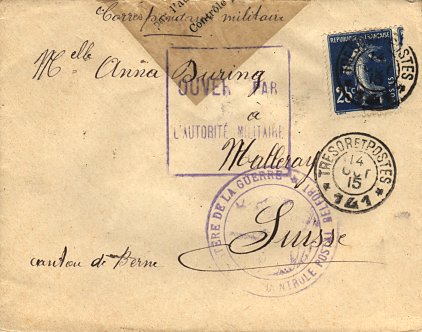 Correspondance militaire
Contrôle
Melle Anna Buring
OUVERT PAR
L'AUTORITÉ MILITAIRE
à
Malleray
Suisse
canton de Berne
REPUBLIQUE FRANÇAISE
25c
POSTES
POSTES
TRESOR ET POSTES
14
OCT
15
* 141 *
MINISTERE DE LA GUERRE
BELFORT
CONTROLE POSTAL